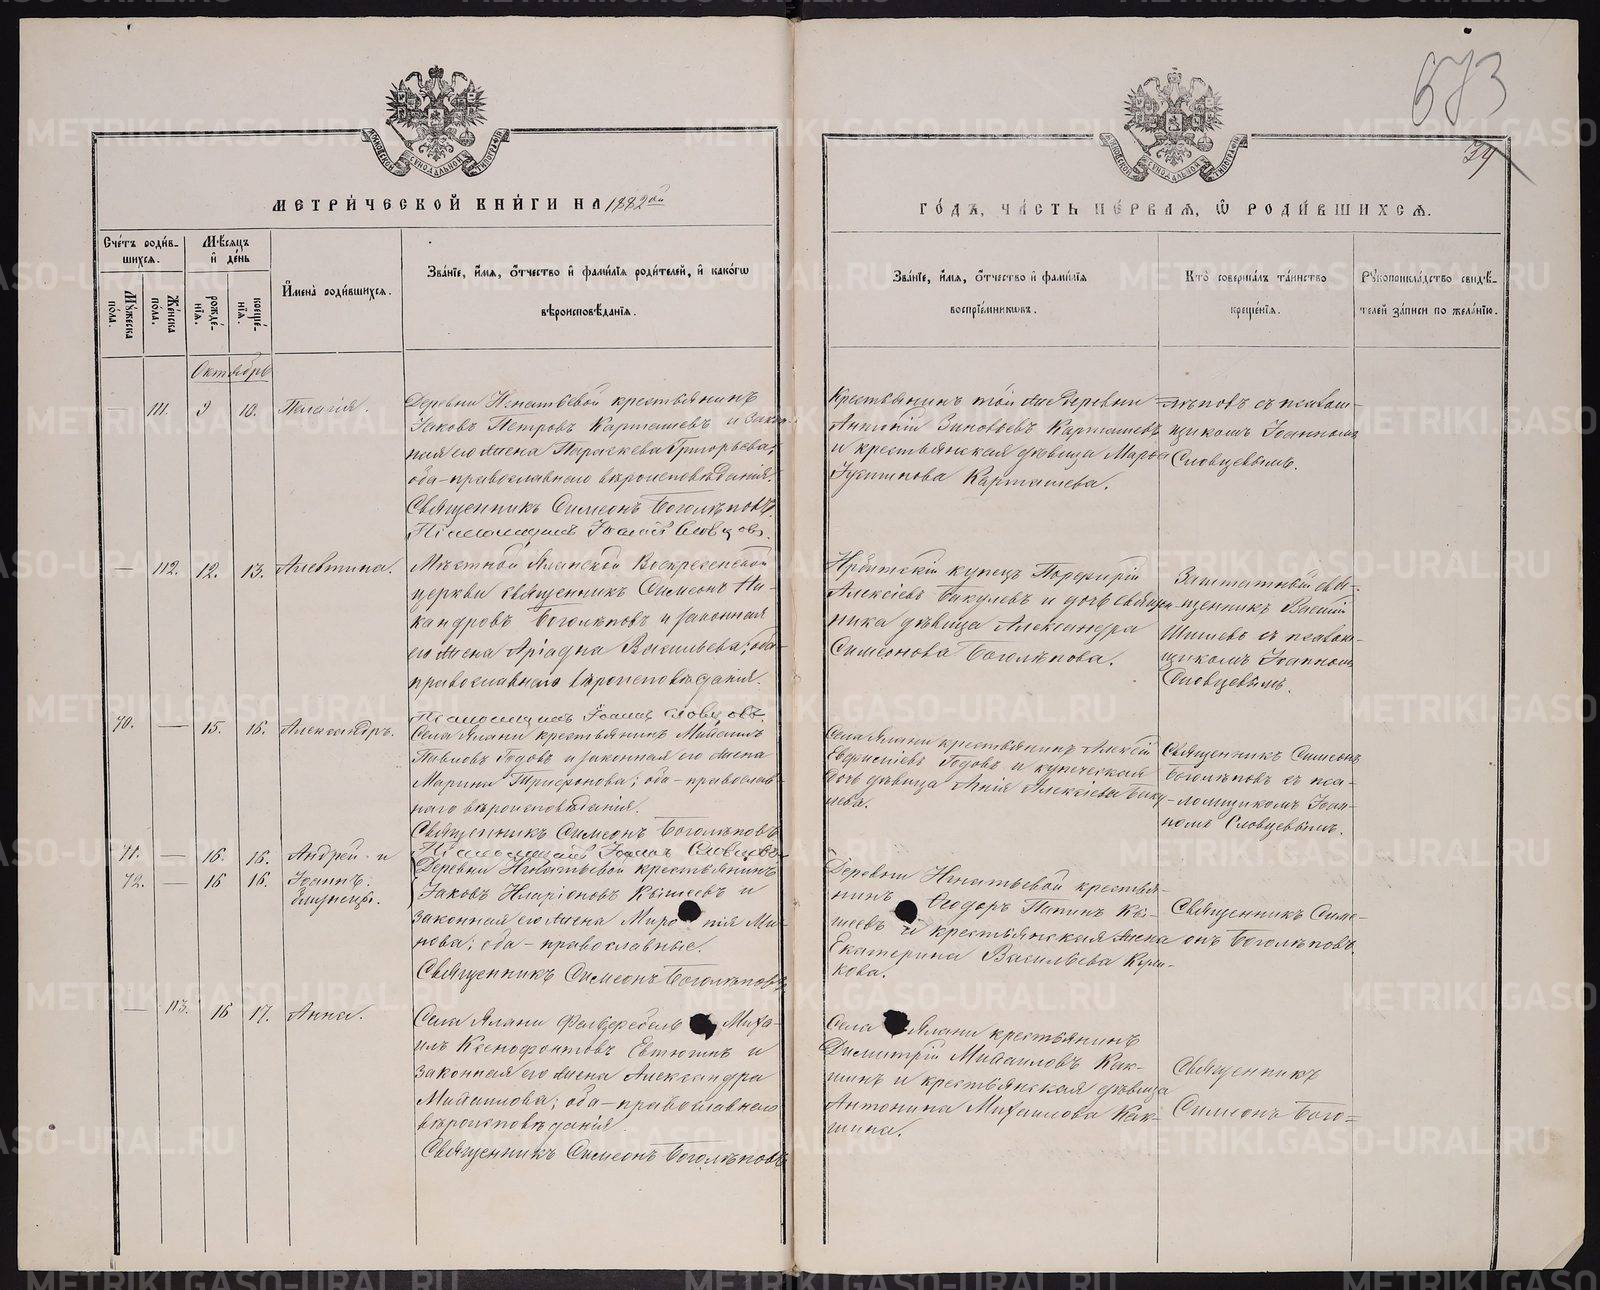 673
74
МЕТРИ́ЧЕСКОЙ КНИ́ГИ НА 1882ой
ГО́ДЪ, ЧА́СТЬ ПЕ́РВАЯ, Ѡ РОДИ́ВШИХСЯ.
Счетъ роди́вшихся.
Му́жеска по́ла.
Же́нска по́ла.
Мѣсяцъ и де́нь
рожде́нія.
креще́нія.
Имена̀ роди́вшихся.
Зва́нїе, и́мя, о́тчество и фами́лїя роди́телей, и како́гѡ
вѣроисповѣ́данїя.
Зва́нїе, и́мя, о́тчество и фами́лїя
воспрїе́мникѡвъ.
Кто̀ соверша́лъ та́инство
креще́нїя.
Рукоприкла́дство свидѣ́-
телей за́писи по жела́нїю.
Октябрь
— 111. 9 10. Пелагія.
Деревни Игнатьевой крестьянинъ
Іаковъ Петровъ Карташевъ и закон-
ная его жена Параскева Григорьева;
оба - православнаго вѣроисповѣданія.
Священникъ Симеонъ Боголѣповъ
Псаломщикъ Іоаннъ Словцовъ.
Крестьянинъ той же деревни
Антоній Зиновьевъ Карташевъ
и крестьянская дѣвица Марѳа
Іустинова Карташева.
лѣповъ съ псалом-
щикомъ Іоанномъ
Словцевымъ.
— 112. 12. 13. Алевтина.
Мѣстной Яланской Воскресенской
церкви священникъ Симеонъ Ни-
кандровъ Боголѣповъ и законная
его жена Аріадна Васильева; оба -
православнаго вѣроисповѣданія.
Псаломщикъ Іоаннъ Словцовъ.
Ирбитскій купецъ Порфирій
Алексіевъ Бакулевъ и дочь священ-
ника дѣвица Александра
Симеонова Боголѣпова.
Заштатный свя-
щенникъ Василій
Шишевъ съ псалом-
щикомъ Іоанномъ
Словцевымъ.
70. — 15. 16. Александръ.
Села Ялани крестьянинъ Михаилъ
Павловъ Годовъ и законная его жена
Марина Трифонова; оба - православ-
наго вѣроисповѣданія.
Священникъ Симеонъ Боголѣповъ
Псаломщикъ Іоаннъ Словцовъ
Села Ялани крестьянинъ Алексій
Годовъ и купеческая
дочь дѣвица Алексіева Баку-
лева.
Священникъ Симеонъ
Боголѣповъ съ пса-
ломщикомъ Іоан-
номъ Словцевымъ.
71. — 16. 16. Андрей и
72. — 16 16. Іоаннъ.
близнецы.
Деревни Игнатьевой крестьянинъ
Іаковъ Иларіоновъ и
законная его жена Миро нія Ми-
нова; оба - православные.
Священникъ Симеонъ Боголѣповъ
Деревни Игнатьевой крестья-
нинъ Ѳеодоръ
и крестьянская жена
Екатерина Васильева
кова.
Священникъ Симе-
онъ Боголѣповъ.
— 113. 16 17. Анна.
Села Ялани Фельдфебель Миха-
илъ Ксенофонтовъ Евтюгинъ и
законная его жена Александра
Михаилова; оба - православнаго
вѣроисповѣданія
Священникъ Симеонъ Боголѣповъ
Села Ялани крестьянинъ
Димитрій Михаиловъ Как-
шинъ и крестьянская дѣвица
Антонина Михаилова Как-
шина.
Священникъ
Симеонъ Бого-